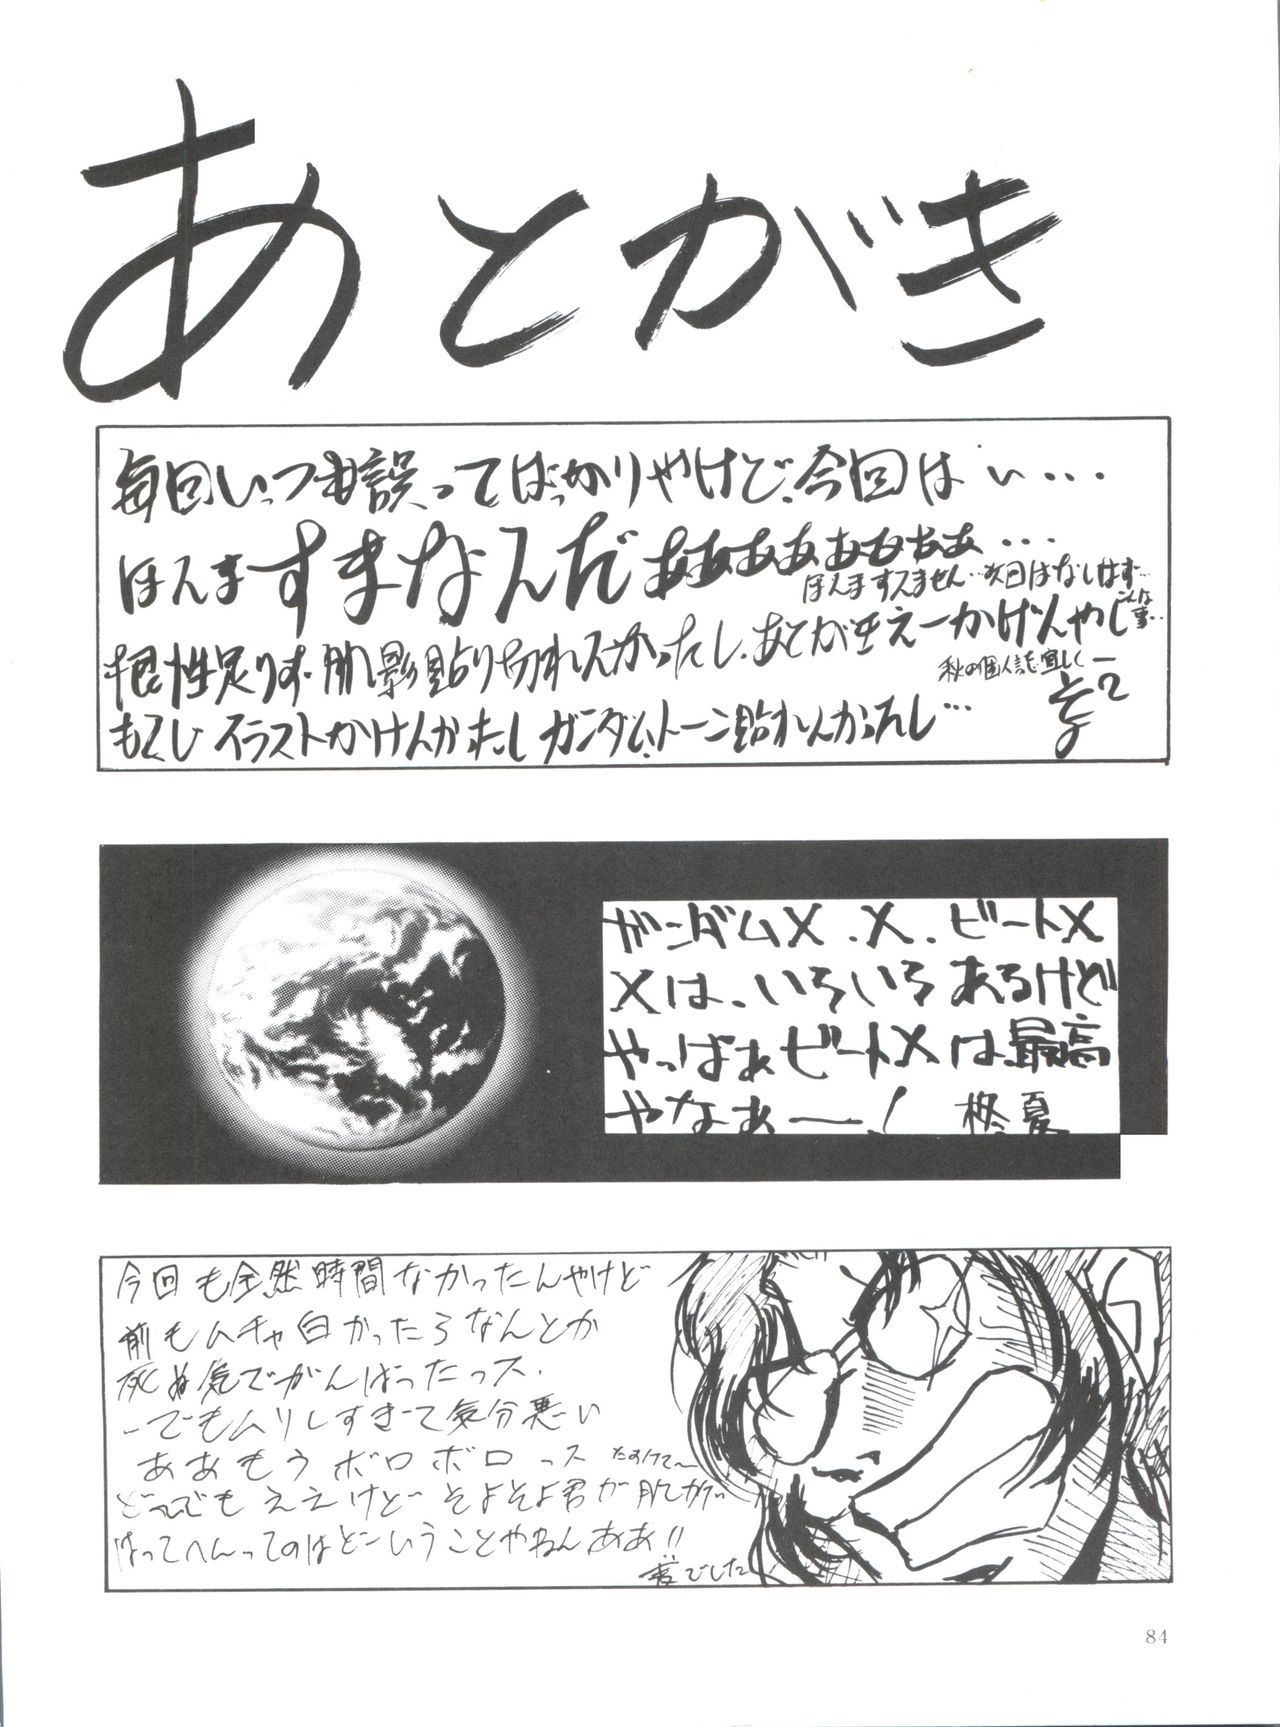 あとがき
毎回いっつも誤ってばっかりやけど、今回はい・・・
ほんますまなんだぁああああああぁ・・・
ほんますんません…次回はなしはず…こんな事…
根性足りず、肌影貼り切れんかったし、あとがきえーかけんやし
秋の個人誌宜しくー
もくじイラストかけんかったし ガンダム、トーン貼れんかったし…
ガンダムX.X.ビートX
Xは、いろいろあるけど
やっぱぁビートXは最高
やなぁー！ 柊夏
今回も全然時間なかったんやけど
前もムチャ白かったろなんとか
死ぬ気でがんばったっス.
ーでもムリしすぎて気分悪い
ああもうボロボロっス たすけて〜
どーでもええけど そよそよ君が肌カゲ
はってへんってのはどーいうことやねんああ!!
でした
84